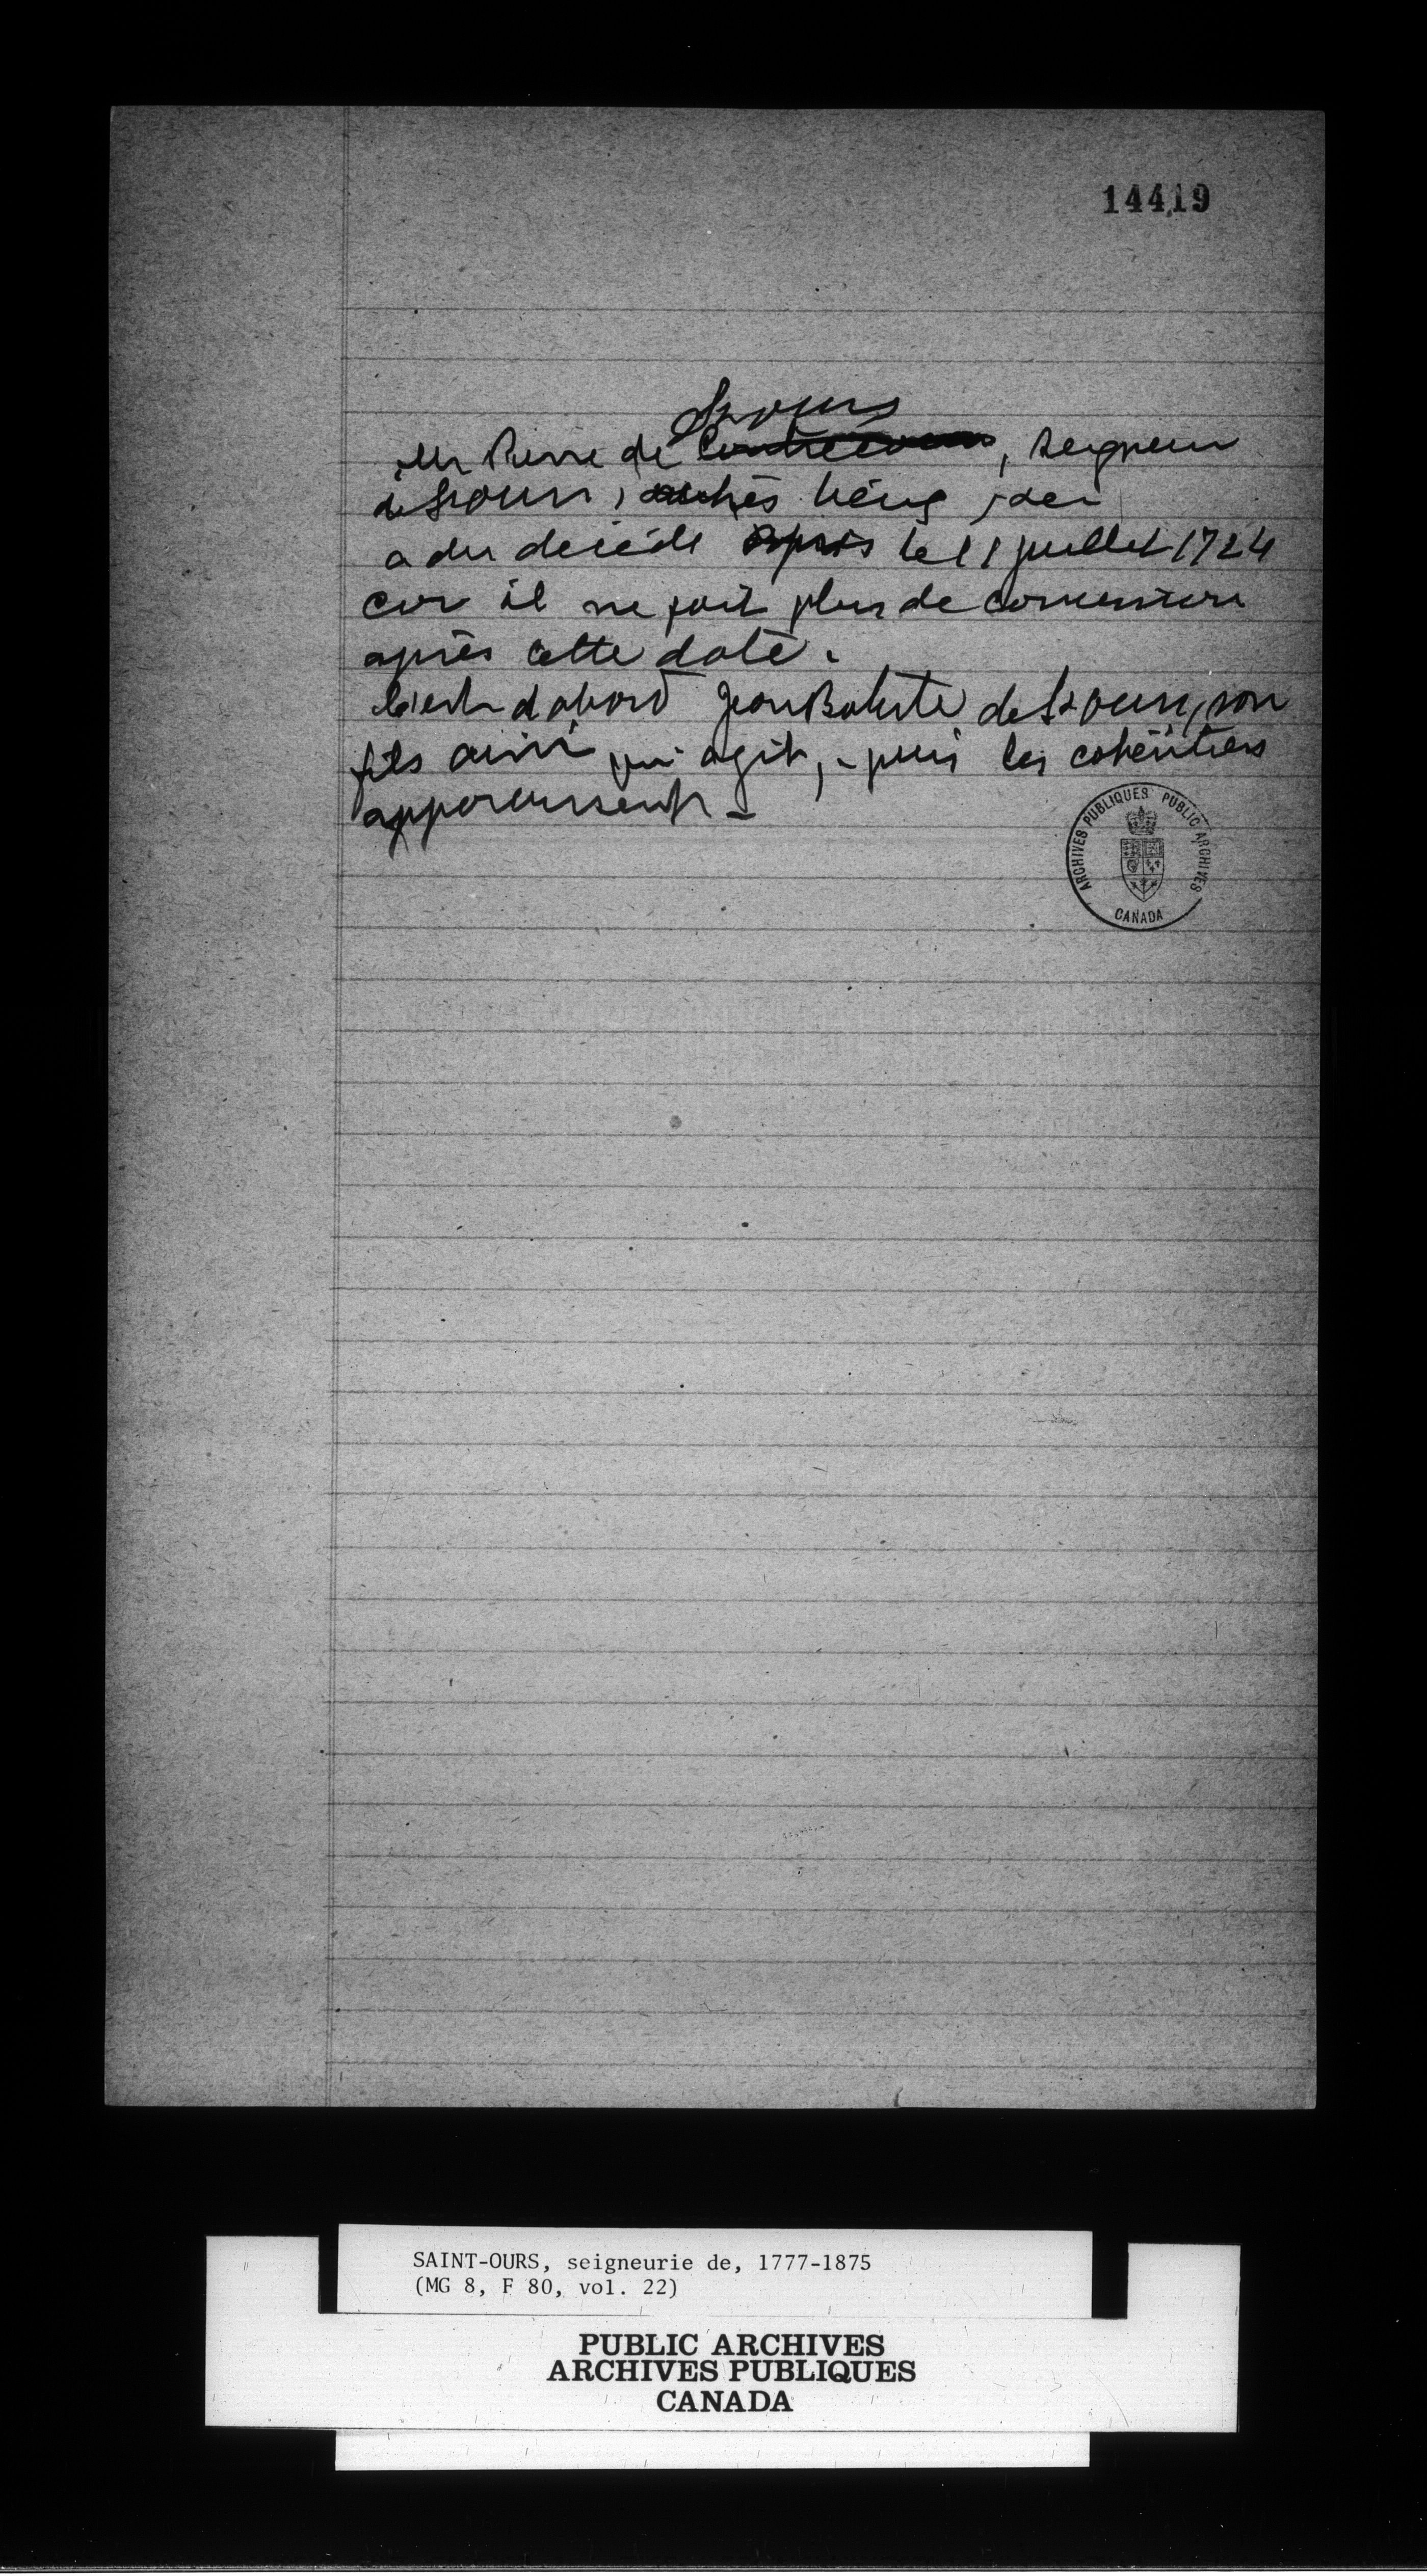 14419
St ours
Mr Pierre de Contrecoeur, Seigneur
de St ours,
a du décédé après le 11 juillet 1724
car il ne fait plus de concession
après cette date.
C'est d'abord Jean Batiste de St ours, son
fils ainé qui agit, - puis les cohéritiers
apparaissent -
ARCHIVES PUBLIQUES PUBLIC ARCHIVES
CANADA
SAINT-OURS, seigneurie de, 1777-1875
(MG 8, F 80, vol. 22)
PUBLIC ARCHIVES
ARCHIVES PUBLIQUES
CANADA